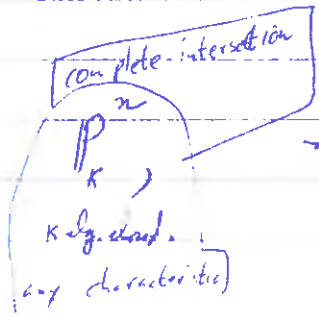 complete-intersection
n
ℙ
K ,
K alg. closed.
any characteristic